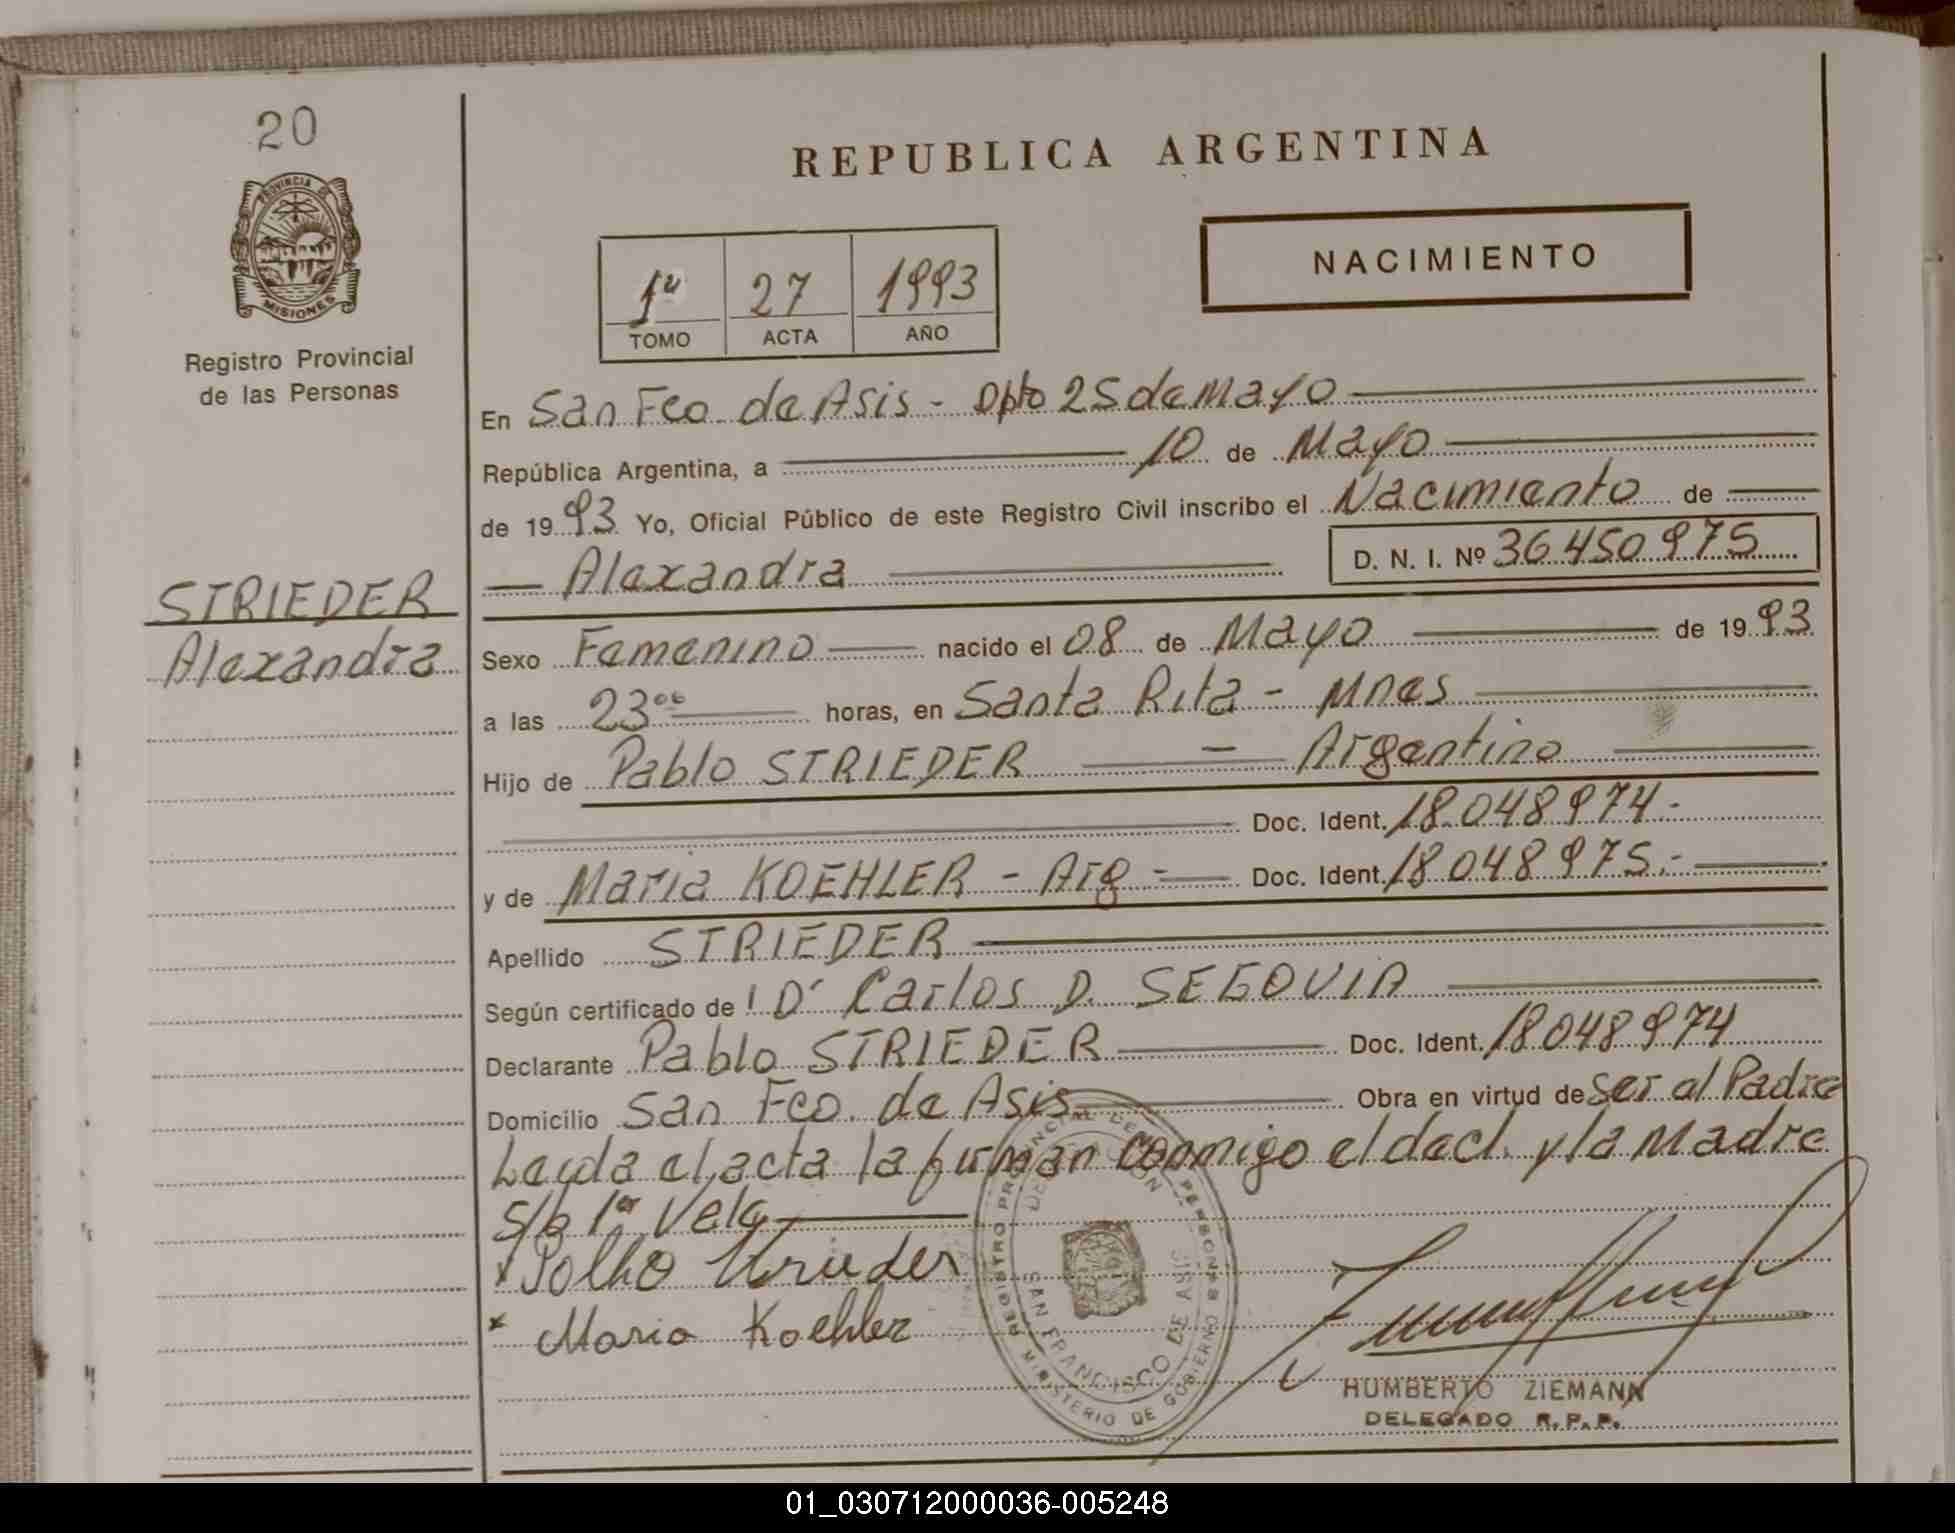 20
REPUBLICA ARGENTINA
PROVINCIA DE
MISIONES
Registro Provincial
de las Personas
1º 27 1993
TOMO ACTA AÑO
NACIMIENTO
En San Fco. de Asis - Dpto 25 de Mayo
República Argentina, a 10 de Mayo
de 1993 Yo, Oficial Público de este Registro Civil inscribo el Nacimiento de
Alexandra D. N. I. Nº 36.450.975
STRIEDER
Alexandra
Sexo Femenino nacido el 08 de Mayo de 1993
a las 23⁰⁰ horas, en Santa Rita - Mnes
Hijo de Pablo STRIEDER - Argentino
Doc. Ident. 18.048.974.-
y de Maria KOEHLER - Arg - Doc. Ident. 18.048.975.-
Apellido STRIEDER
Según certificado de: Dr Carlos D. SEGOVIA
Declarante Pablo STRIEDER Doc. Ident. 18.048.974
Domicilio San Fco. de Asis Obra en virtud de Ser el Padre
Leyda el acta la firman conmigo el decl. y la Madre
x
x Maria Koehler
REGISTRO PROVINCIAL DE PERSONAS
DELEGACION
SAN FRANCISCO DE ASIS
MINISTERIO DE GOBIERNO
HUMBERTO ZIEMANN
DELEGADO R.P.P.
01_030712000036-005248